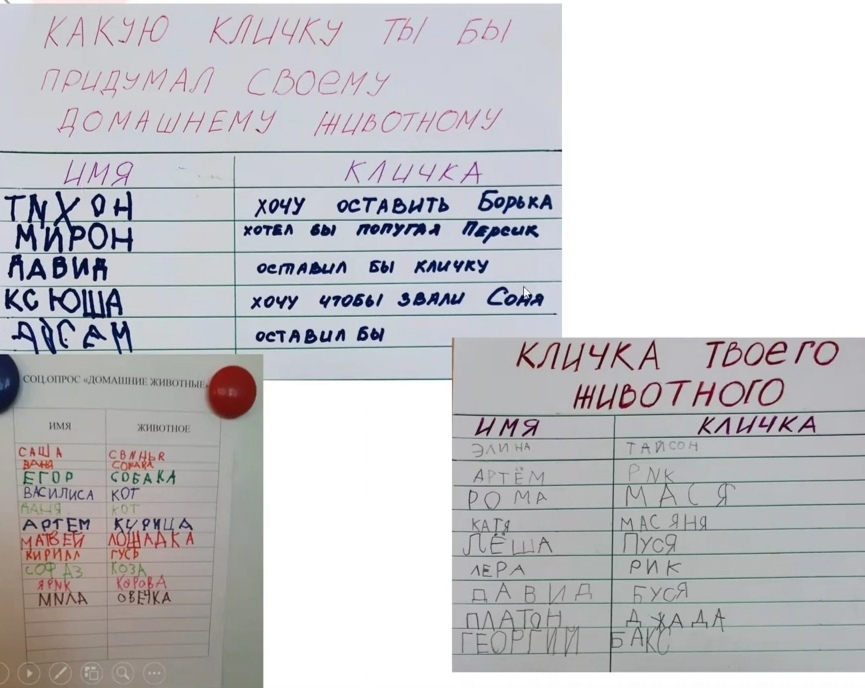 КАКУЮ КЛИЧКУ ТЫ БЫ
ПРИДУМАЛ СВОЕМУ
ДОМАШНЕМУ ЖИВОТНОМУ
ИМЯ КЛИЧКА
ТNХОН ХОЧУ ОСТАВИТЬ БОРЬКА
МИРОН ХОТЕЛ БЫ ПОПУГАЯ ПЕРСИК
ДАВИД ОСТАВИЛ БЫ КЛИЧКУ
КСЮША ХОЧУ ЧТОБЫ ЗВАЛИ СОНЯ
ОСТАВИЛ БЫ
СОЦ.ОПРОС «ДОМАШНИЕ ЖИВОТНЫЕ»
ИМЯ ЖИВОТНОЕ
САША СВИНЬЯ
ВАНЯ СОБАКА
ЕГОР СОБАКА
ВАСИЛИСА КОТ
ВАНЯ КОТ
АРТЕМ КУРИЦА
МАТВЕЙ ЛОШАДКА
КИРИЛЛ ГУСЬ
КОЗА
ЯРNК КОРОВА
МNЛА ОВЕЧКА
КЛИЧКА ТВОЕГО
ЖИВОТНОГО
ИМЯ КЛИЧКА
ЭЛИНА ТАЙСОН
АРТЁМ РNК
РОМА МАСЯ
КАТЯ МАСЯНЯ
ЛЁША ПУСЯ
ЛЕРА РИК
ДАВИД БУСЯ
ПЛАТОН ДЖАДА
ГЕОРГИЙ БАКС